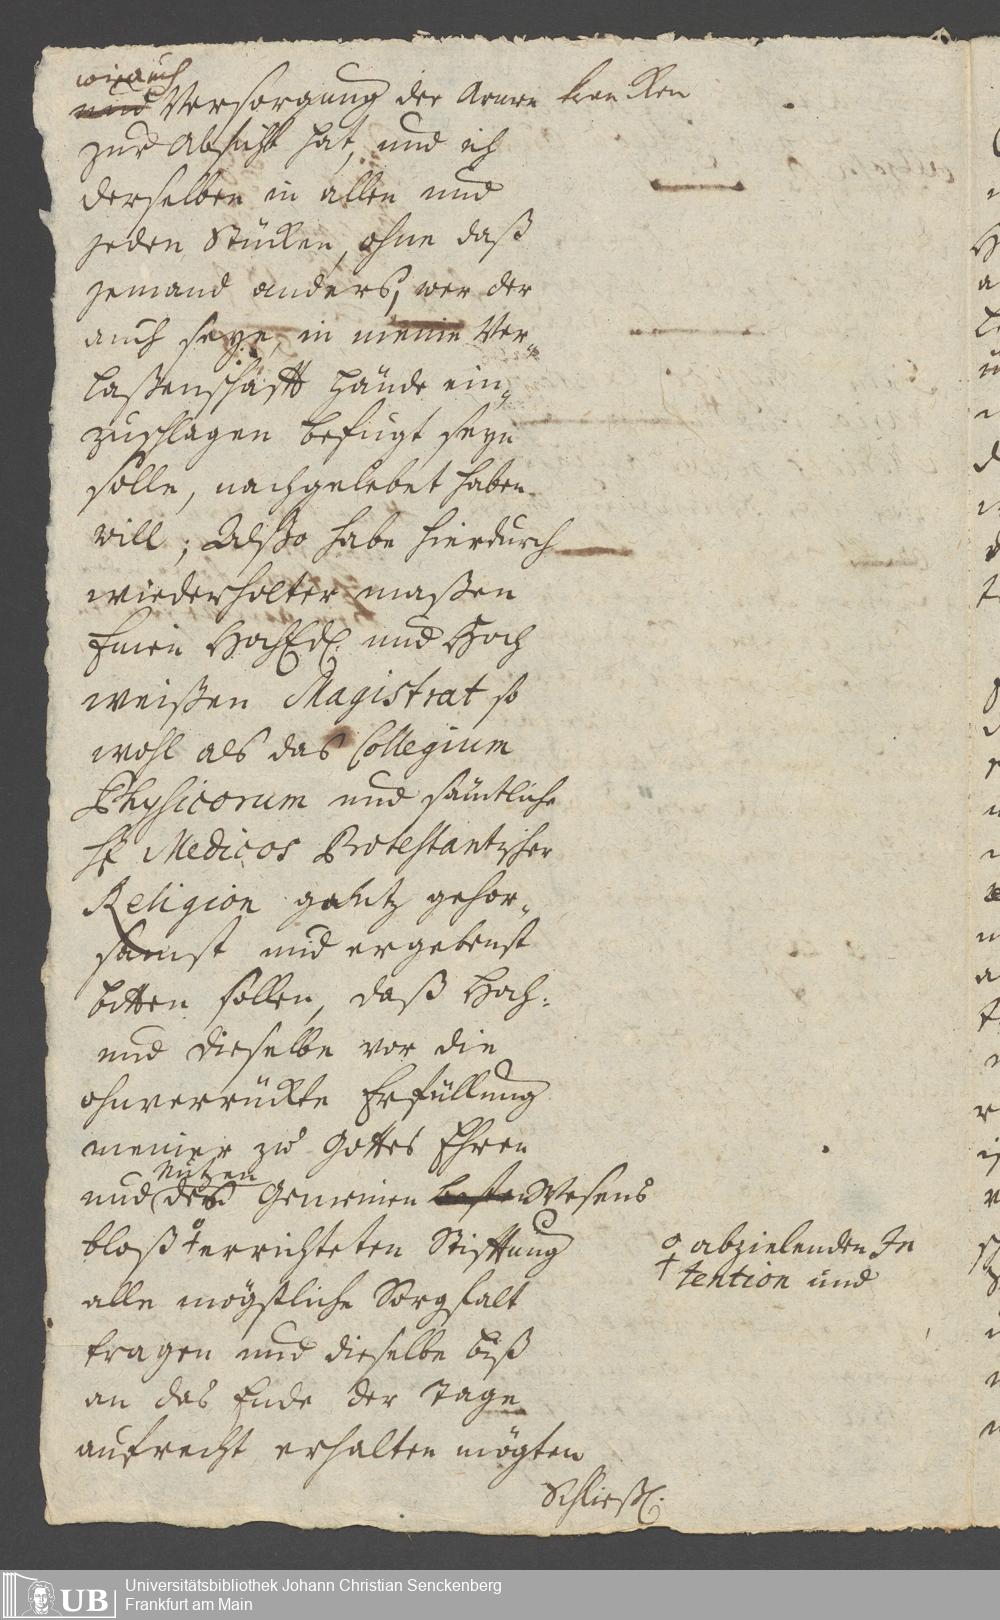 wie auch
und Versorgung der Armen krancken
zur Absicht hat, und ich
derselben in allen und
jeden Stücken, ohne daß
jemand anders, wer der
auch seye, in meine Ver„
laßenschafft Hände ein„
zuschlagen befugt seyn
solle, nachgelebet haben
will; Alßo habe hierdurch
wiederholter maßen
Einen HochEdl. und Hoch
weißen Magistrat so
wohl als das Collegium
Physicorum und sämtliche
HE Medicos Protestantischer
Religion gantz gehor„
samst und ergebenst
bitten sollen, daß Hoch-
und dieselbe vor die
ohnverrückte Erfüllung
meiner zu Gottes Ehren
Nutzen
und des Gemeinen besten Wesens
bloß ♀ errichteten Stifftung
♀ abzielenden In
tention und
alle mögstliche Sorgfalt
tragen und dieselbe biß
an das Ende der Tage
aufrecht erhalten mögten
Schließl.
UB
Universitätsbibliothek Johann Christian Senckenberg
Frankfurt am Main